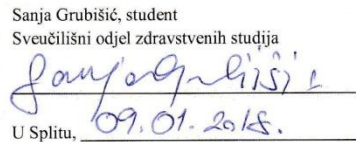 Sanja Grubišić, student
Sveučilišni odjel zdravstvenih studija
Sanja Grubišić
U Splitu, 09.01.2018.